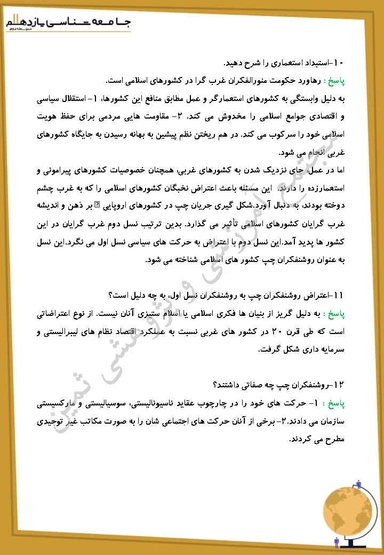 جامعه شناسی یازدهم
۱۰-استبداد استعماری را شرح دهید.
پاسخ : رهاورد حکومت منورالفکران غرب گرا در کشورهای اسلامی است.
به دلیل وابستگی به کشورهای استعمارگر و عمل مطابق منافع این کشورها، ۱- استقلال سیاسی
و اقتصادی جوامع اسلامی را مخدوش می کند. ۲- مقاومت هایی مردمی برای حفظ هویت
اسلامی خود را سرکوب می کند. در هم ریختن نظم پیشین به بهانه رسیدن به جایگاه کشورهای
غربی انجام می شود.
اما در عمل، جای نزدیک شدن به کشورهای غربی، همچنان خصوصیات کشورهای پیرامونی و
استعمارزده را دارند، این مسئله باعث اعتراض نخبگان کشورهای اسلامی را که به غرب چشم
دوخته بودند، به دنبال آورد.شکل گیری جریان چپ در کشورهای اروپایی بر ذهن و اندیشه
غرب گرایان کشورهای اسلامی تأثیر می گذارد. بدین ترتیب نسل دوم غرب گرایان در این
کشور ها پدید آمد.این نسل دوم با اعتراض به حرکت های سیاسی نسل اول می نگرد.این نسل
به عنوان روشنفکران چپ کشور های اسلامی شناخته می شود.
۱۱-اعتراض روشنفکران چپ به روشنفکران نسل اول، به چه دلیل است؟
پاسخ : به دلیل گریز از بنیان ها فکری اسلامی یا اسلام ستیزی آنان نیست. از نوع اعتراضاتی
است که طی قرن ۲۰ در کشور های غربی نسبت به عملکرد اقتصاد نظام های لیبرالیستی و
سرمایه داری شکل گرفت.
۱۲-روشنفکران چپ چه صفاتی داشتند؟
پاسخ : ۱- حرکت های خود را در چارچوب عقاید ناسیونالیستی، سوسیالیستی و مارکسیستی
سازمان می دادند.۲- برخی از آنان حرکت های اجتماعی شان را به صورت مکاتب غیر توحیدی
مطرح می کردند.